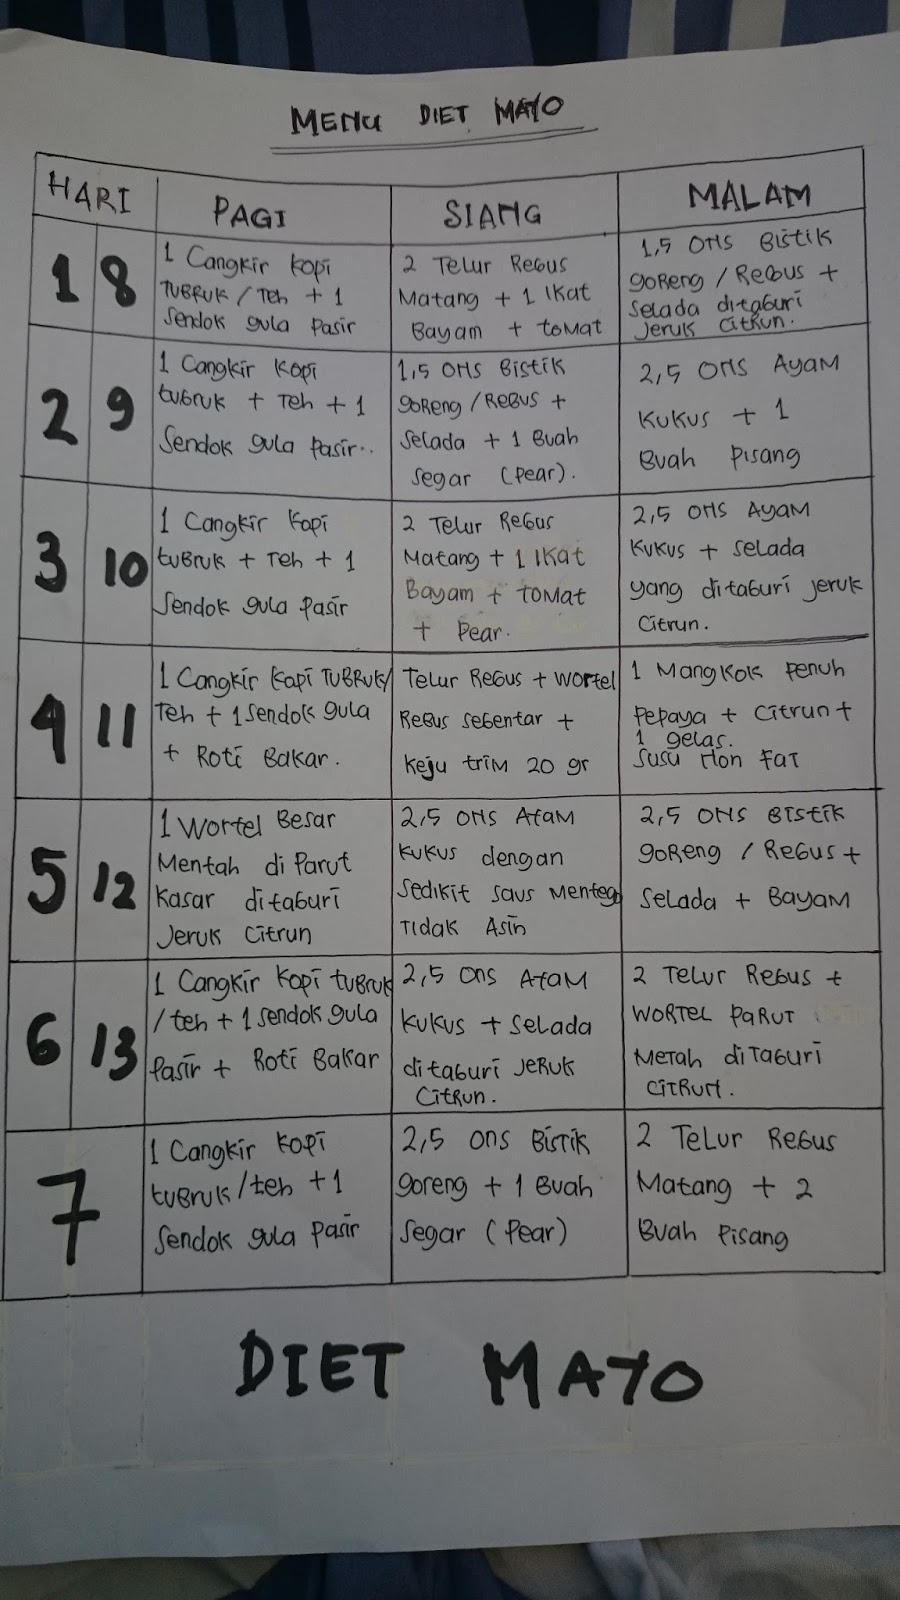 MENU DIET MAYO
HARI
PAGI
SIANG
MALAM
1 8
1 Cangkir Kopi
TUBRUK / Teh + 1
Sendok gula Pasir
2 Telur Rebus
Matang + 1 Ikat
Bayam + tomat
1,5 Ons Bistik
goreng / Rebus +
Selada ditaburi
Jeruk Citrun.
2 9
1 Cangkir Kopi
tubruk + Teh + 1
Sendok gula Pasir..
1,5 Ons Bistik
goreng / Rebus +
Selada + 1 Buah
Segar (Pear).
2,5 Ons Ayam
Kukus + 1
Buah Pisang
3 10
1 Cangkir Kopi
tubruk + Teh + 1
Sendok gula Pasir
2 Telur Rebus
Matang + 1 Ikat
Bayam + tomat
+ Pear.
2,5 Ons Ayam
Kukus + Selada
yang ditaburi Jeruk
Citrun.
4 11
1 Cangkir Kopi TUBRUK/
Teh + 1 Sendok gula
+ Roti Bakar.
Telur Rebus + Wortel
Rebus sebentar +
Keju trim 20 gr
1 Mangkok Penuh
Pepaya + Citrun +
1 gelas.
Susu Non Fat
5 12
1 Wortel Besar
Mentah di Parut
Kasar ditaburi
Jeruk Citrun
2,5 Ons Ayam
Kukus dengan
Sedikit Saus Mentega
Tidak Asin
2,5 Ons Bistik
goreng / Rebus +
Selada + Bayam
6 13
1 Cangkir Kopi tubruk
/ teh + 1 sendok gula
Pasir + Roti Bakar
2,5 Ons Ayam
Kukus + Selada
ditaburi Jeruk
Citrun.
2 Telur Rebus +
WORTEL PARUT
Metah diTaburi
Citrun.
7
1 Cangkir Kopi
tubruk/teh + 1
Sendok gula Pasir
2,5 Ons Bistik
goreng + 1 Buah
Segar (Pear)
2 Telur Rebus
Matang + 2
Buah Pisang
DIET MAYO